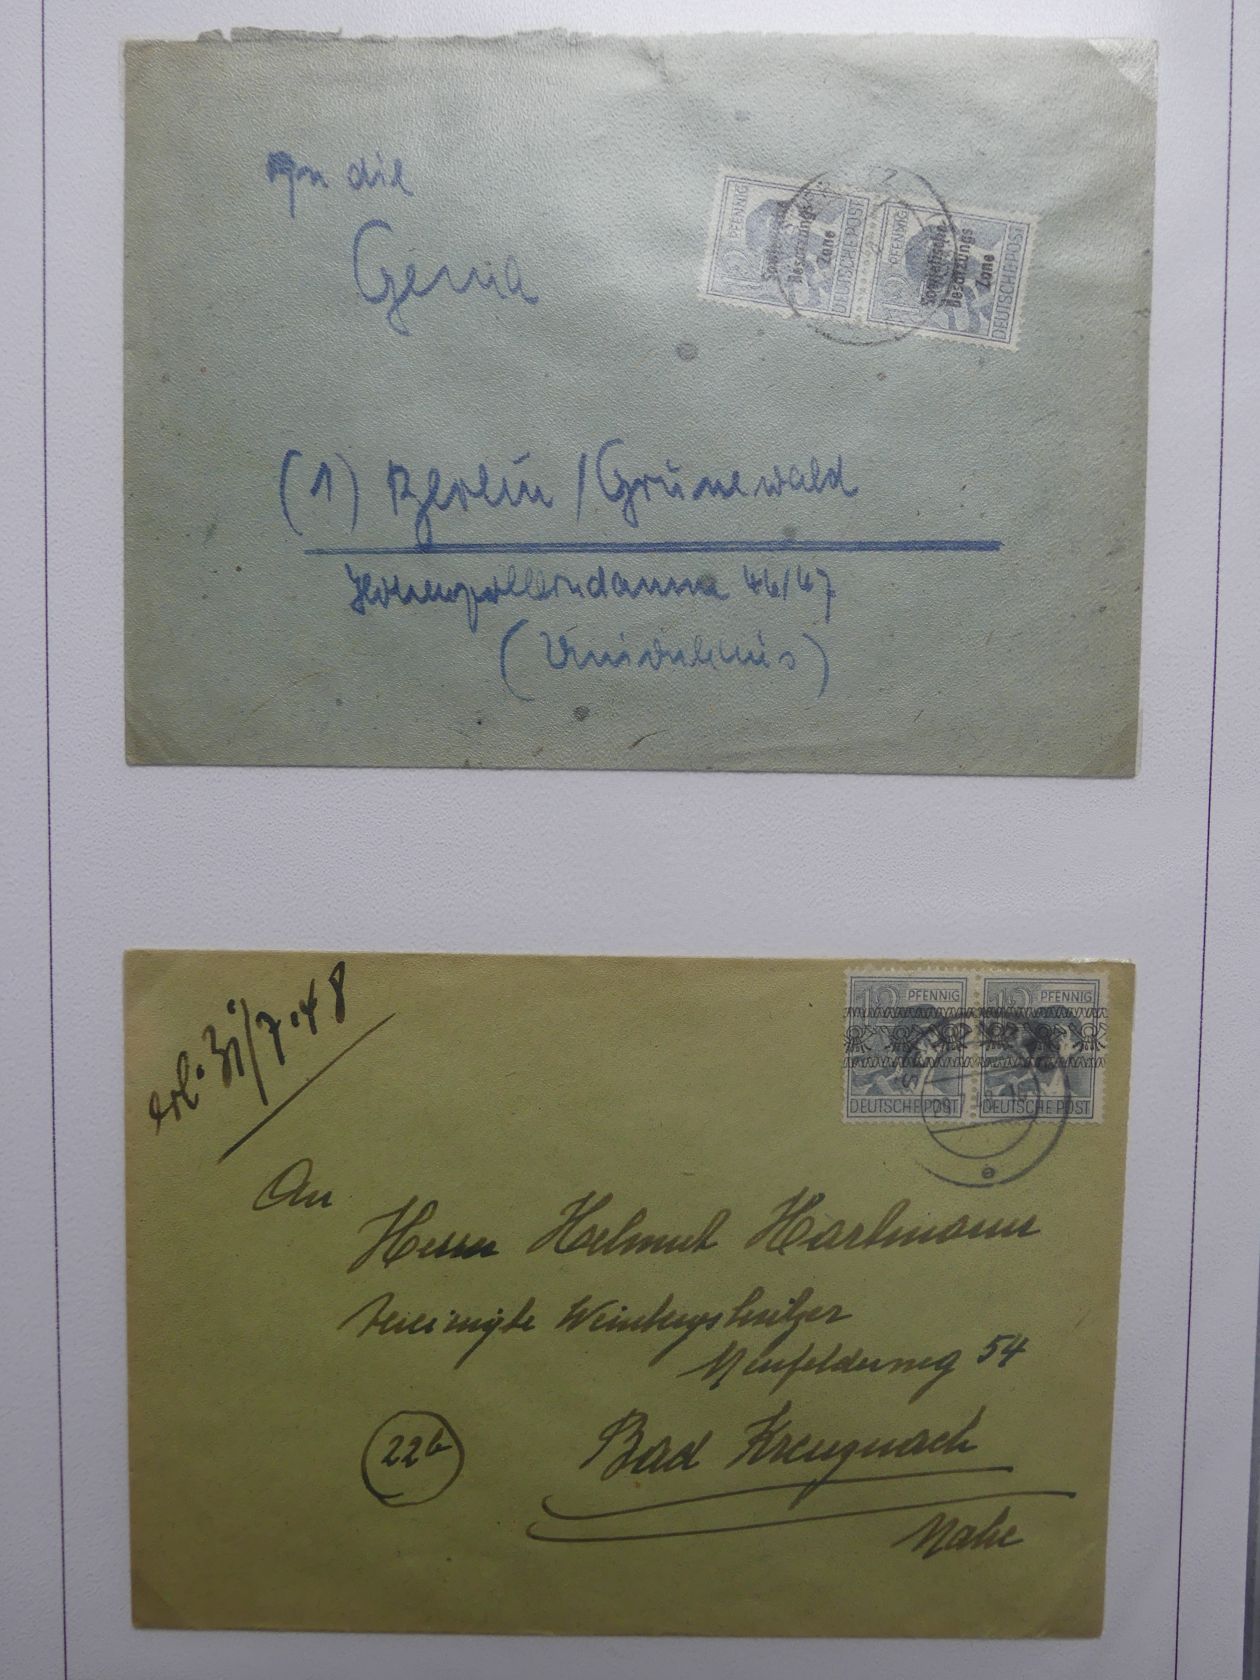 An die
Gema
12 PFENNIG
Sowjetische
Besatzungs
Zone
DEUTSCHE POST
12 PFENNIG
Sowjetische
Besatzungs
Zone
DEUTSCHE POST
(1) Berlin / Grunewald
Hohenzollerndamm 46/47
erl. 31/7.48
12 PFENNIG
DEUTSCHE POST
12 PFENNIG
DEUTSCHE POST
An
Herrn Helmut Hartmann
Vereinigte Weinbergsbesitzer
54
22b
Bad Kreuznach
Nahe